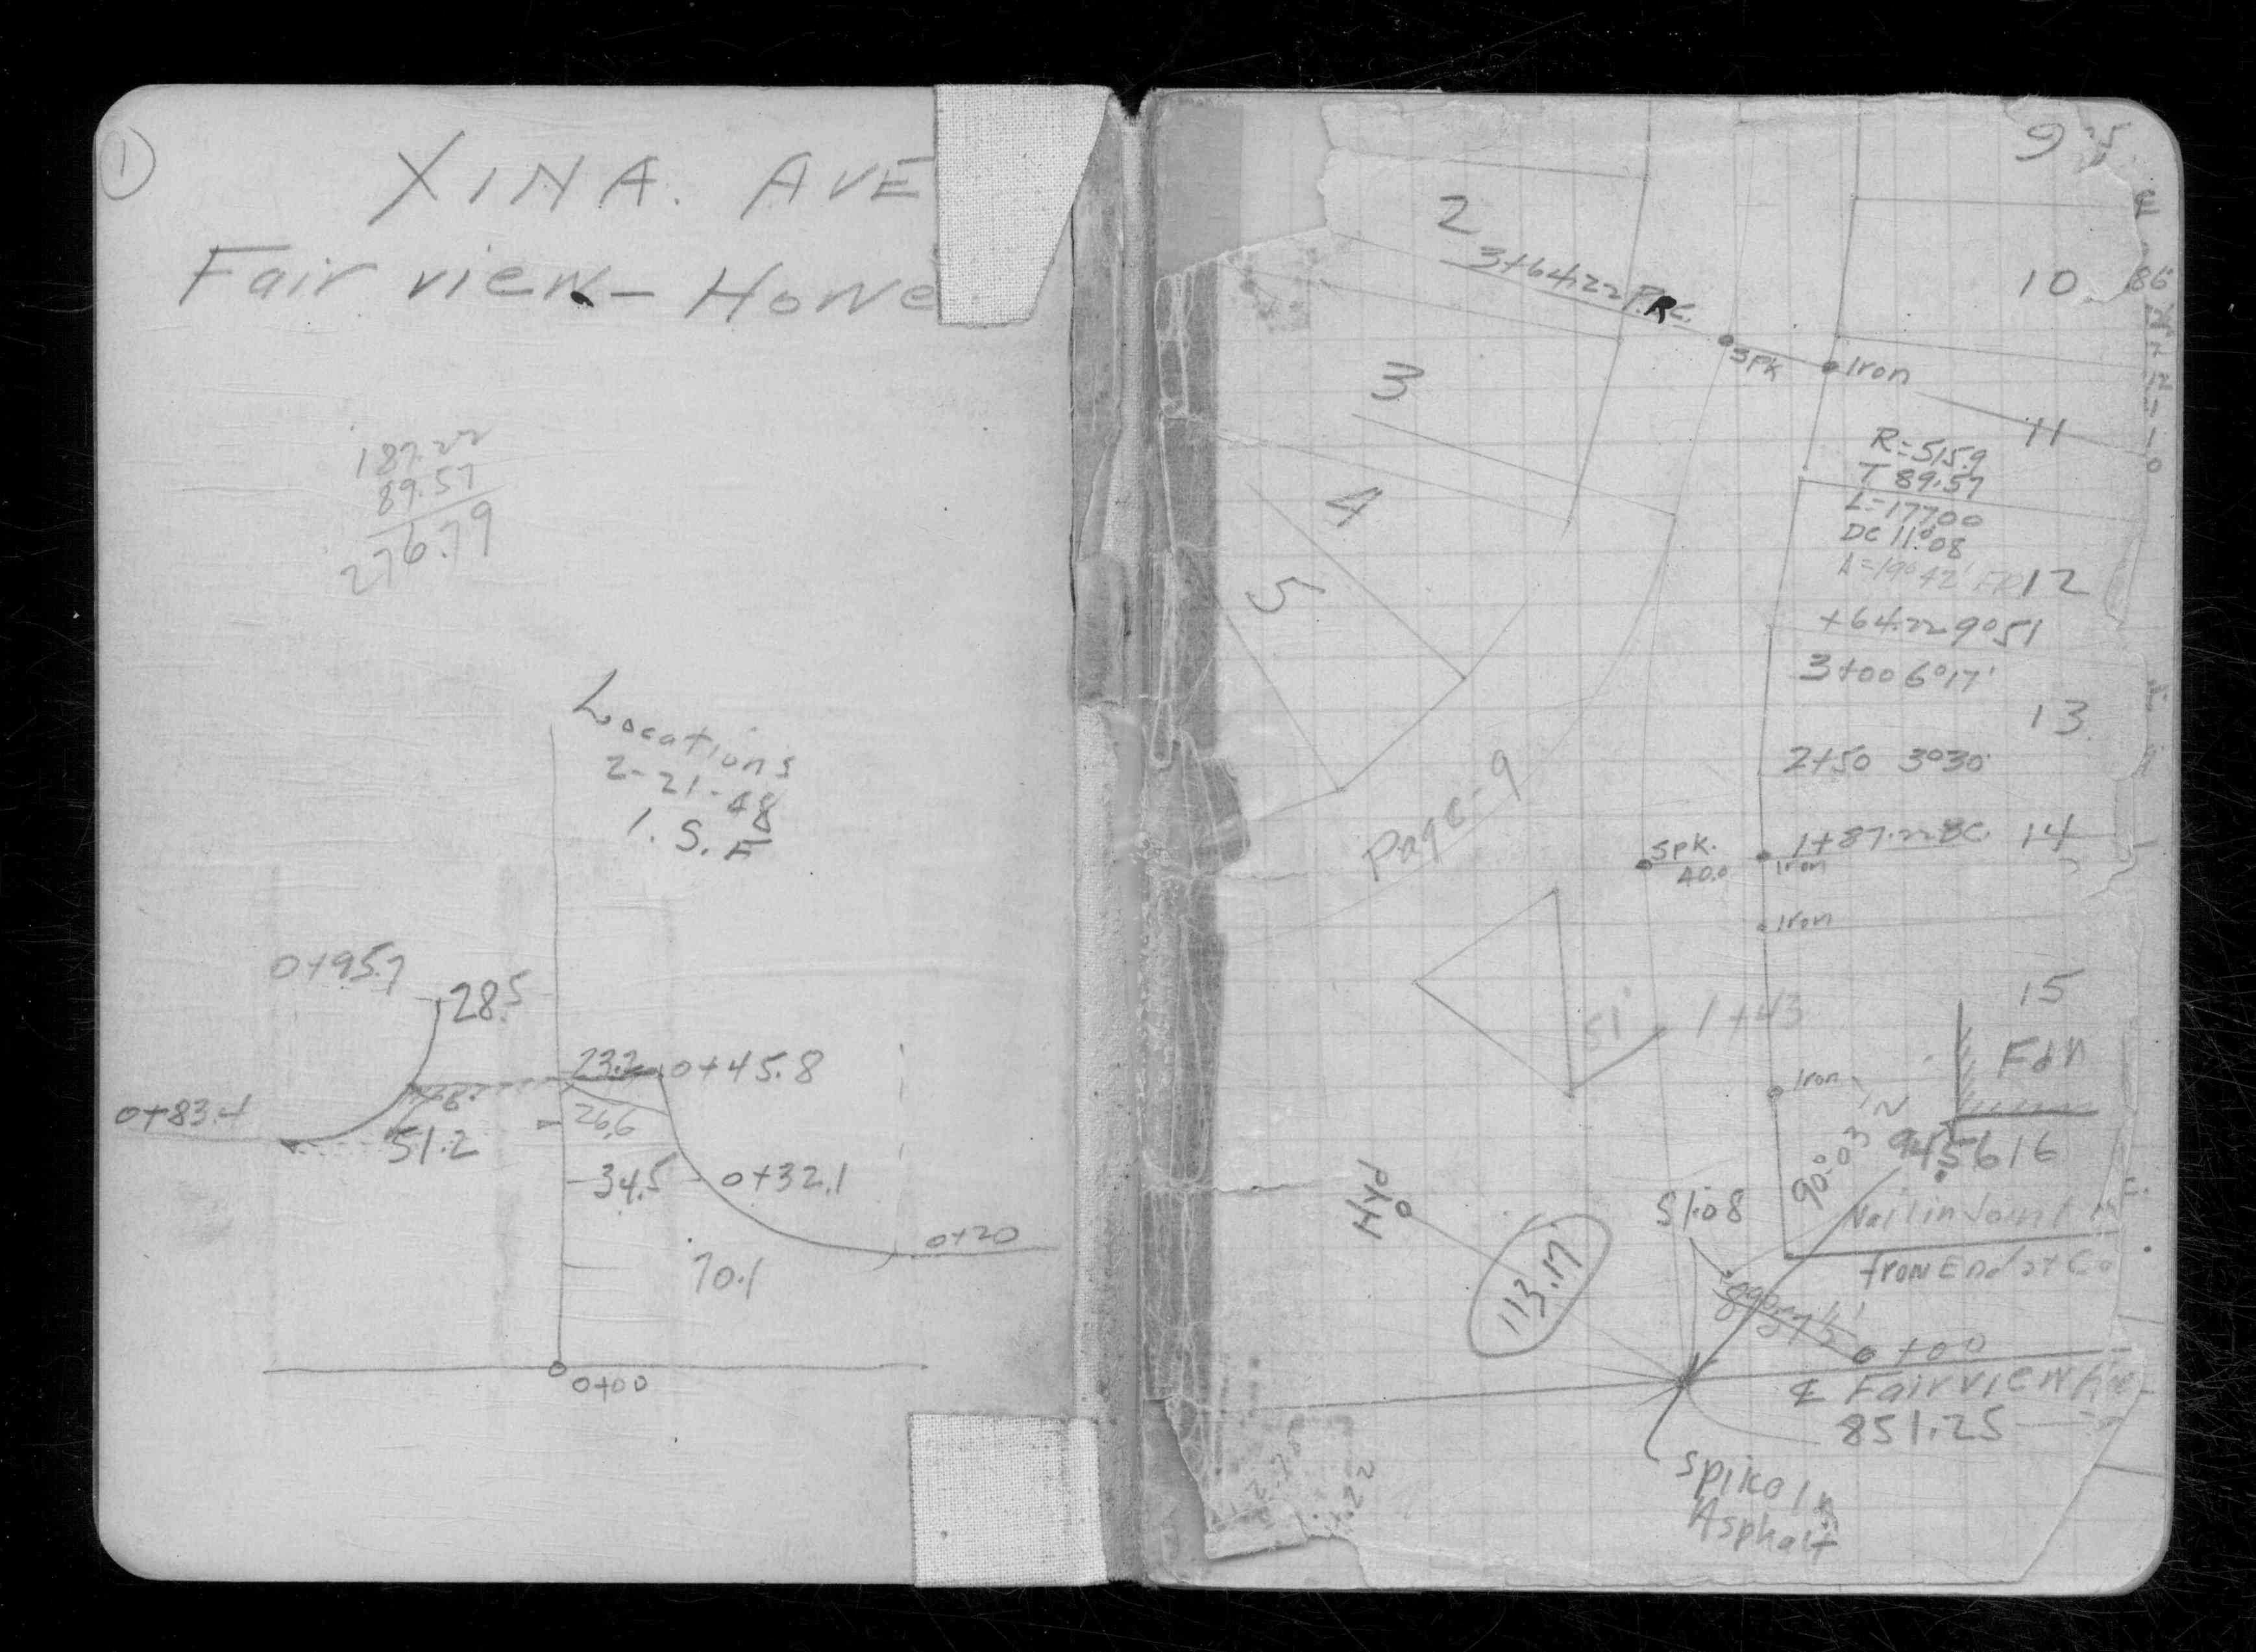 1
XINA. AVE
Fair view - Howe
187.22
89.57
276.79
Locations
2-21-48
1. S. F
0+95.7
28.5
23.2
0+45.8
0+83.4
51.2
26.6
34.5
0+32.1
0+20
70.1
0+00
9
2
3+64.22 P.R.C.
10
86
Spk
Iron
3
11
R=515.9
T 89.57
L=177.00
DC 11°08
Δ=19°42'
12
4
5
+64.22 9°51
3+00 6°17'
13
2+50 3°30'
Page-9
Spk.
40.0
1+87.22 BC.
14
Iron
Iron
15
51'
1+43
Fdn
Iron
90.03
IN
16
Hyd
51.08
Nail in Joint
from End of Co
113.17
0+00
℄ Fairview
851.25
Spike In
Asphalt